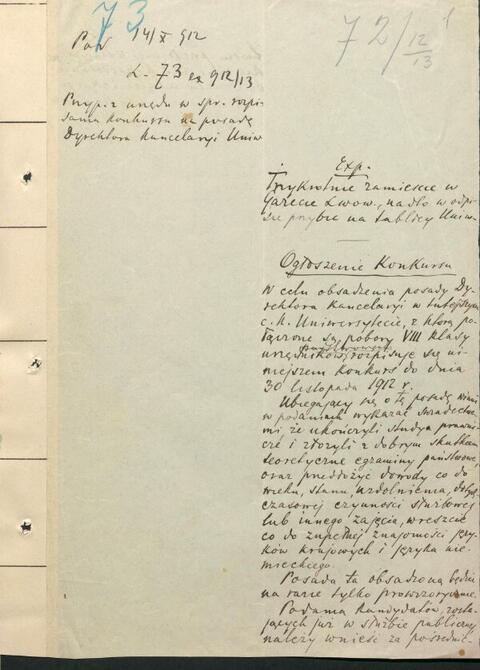 73
72/12/13
1
Pow 14/X 912
L. 73 ex 912/13
Przyp. z urzędu w spr. rozpi-
sania konkursu na posadę
Dyrektora Kancelaryi Uniw
Exp.
Trzykrotnie zamieścić w
Gazecie Lwow., nadto w odpi-
sie przybić na tablicy Uniw.
Ogłoszenie Konkursu
W celu obsadzenia posady Dy-
rektora Kancelaryi w tutejszym
c. k. Uniwersytecie, z którą po-
łączone są pobory VIII klasy
rozpisuje się ni-
niejszem konkurs do dnia
30 listopada 1912 r.
Ubiegający się o tę posadę winni
w podaniach wykazać świadectwa-
mi, że ukończyli studya prawni-
cze i złożyli z dobrym skutkiem
teoretyczne egzaminy państwowe,
oraz przedłożyć dowody co do
wieku, stanu, uzdolnienia, dotych-
czasowej czynności służbowej
lub innego zajęcia, wreszcie
co do zupełnej znajomości języ-
ków krajowych i języka nie-
mieckiego.
Posada ta obsadzoną będzie
na razie tylko prowizorycznie.
Podania kandydatów, zosta-
jących już w służbie publicznej
należy wnieść za pośredni-